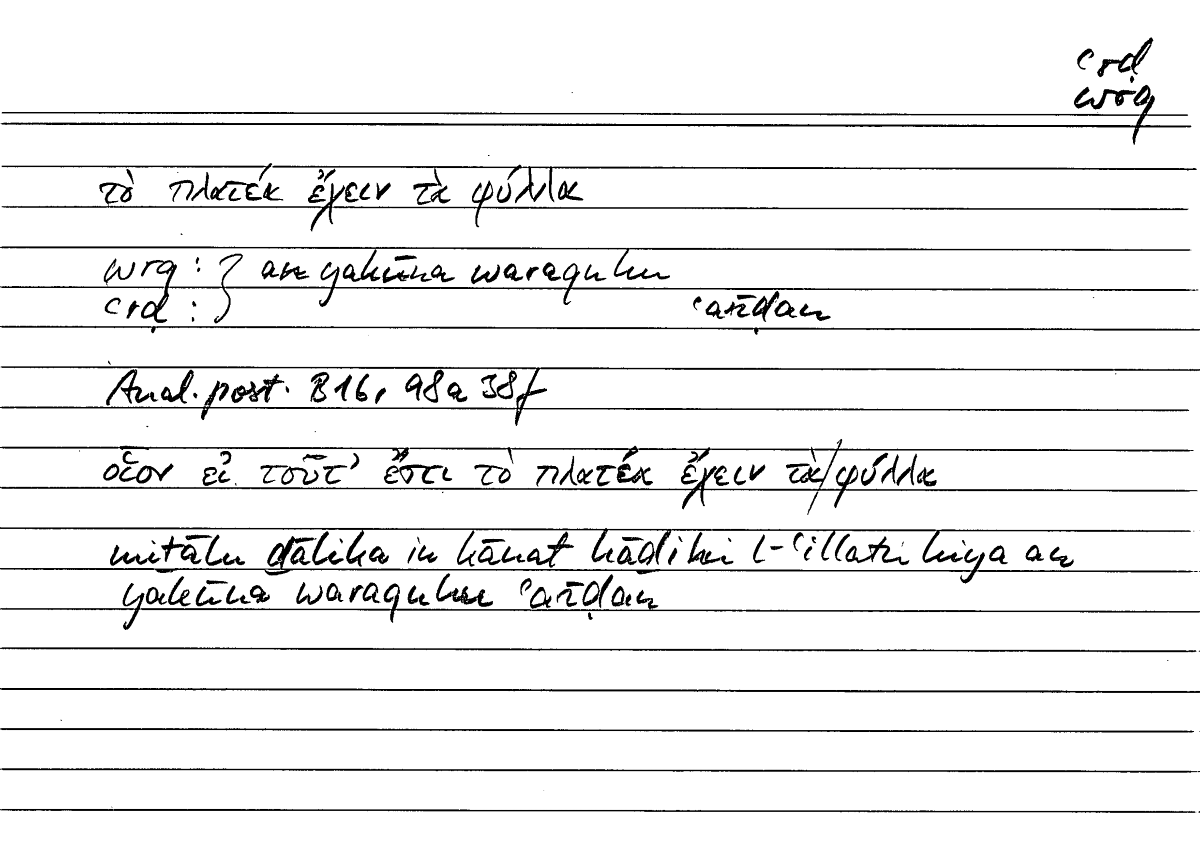 ʿrḍ
wrq
τὸ πλατέα ἔχειν τὰ φύλλα
wrq : } an yakūna waraquhu
ʿrḍ : } ʿarīḍan
Anal. post. B 16, 98a 38f
οἷον εἰ τοῦτ' ἔστι τὸ πλατέα ἔχειν τὰ/φύλλα
mitālu ḏālika in kānat hāḏihi l-ʿillatu hiya an
yakūna waraquhu ʿarīḍan